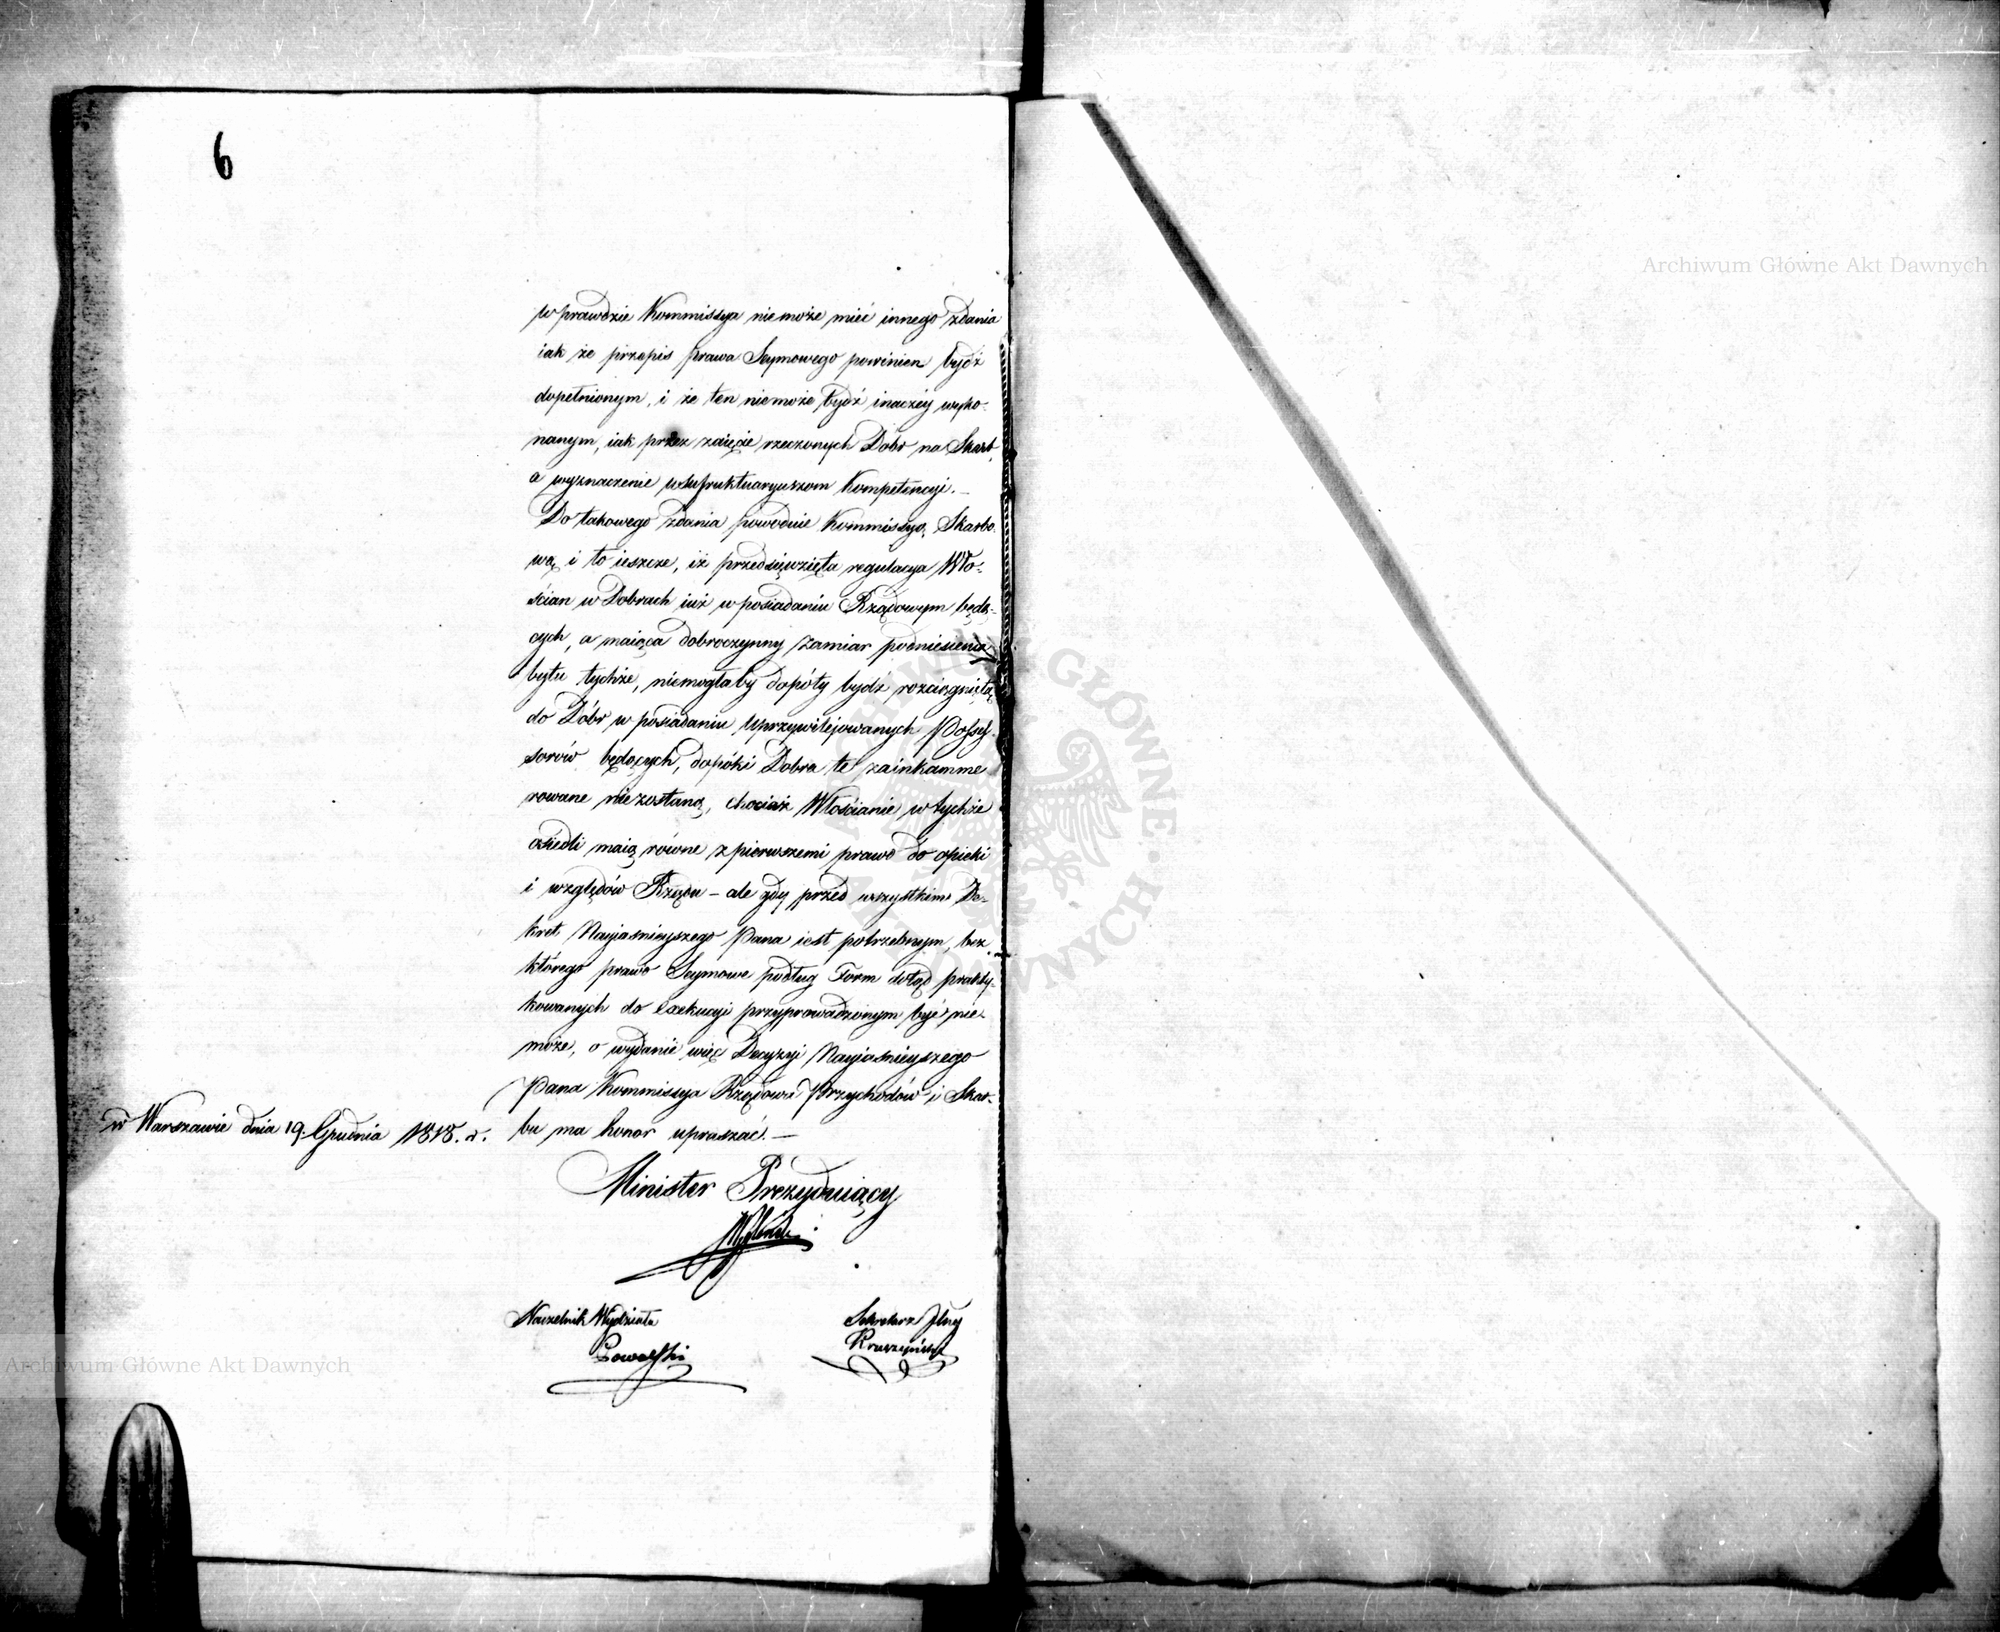 6
w prawdzie Kommissya nie może mieć innego zdania
iak że przepis prawa Seymowego powinien bydź
dopełnionym, i że ten niemoże bydź inaczey wyko-
nanym, iak przez zaięcie rzeczonych Dóbr na Skarb,
a wyznaczenie usufruktuaryuszom Kompetencyi. –
Do takowego zdania powoduie Kommissyą Skarbo-
wą i to ieszcze, iż przedsięwzięta regulacya Wło-
ścian w Dobrach iuż w posiadaniu Rządowym będą-
cych, a maiąca dobroczynny zamiar podniesienia
bytu tychże, niemogłaby dopóty bydź rozciągniętą
do Dóbr w posiadaniu Uprzywilejowanych Possys-
sorów będących, dopóki Dobra te zainkamme
rowane nie zostaną, chociaż Włościanie w tychże
osiedli maią równe z pierwszemi prawo do opieki
i względów Rządu – ale gdy przed wszystkim De-
kret Nayiaśnieyszego Pana iest potrzebnym, bez
którego prawo Seymowe podług Form dotąd prakty-
kowanych do Exekucyi przyprowadzonym być nie
może, o wydanie więc Decyzyi Nayiaśnieyszego
Pana Kommissya Rządowa Przychodów i Skar-
bu ma honor upraszać. –
w Warszawie dnia 19. Grudnia 1818. r.
Minister Prezyduiący
Naczelnik Wydziału
Sekretarz Jlny
Kruszyński
Archiwum Główne Akt Dawnych
Archiwum Główne Akt Dawnych